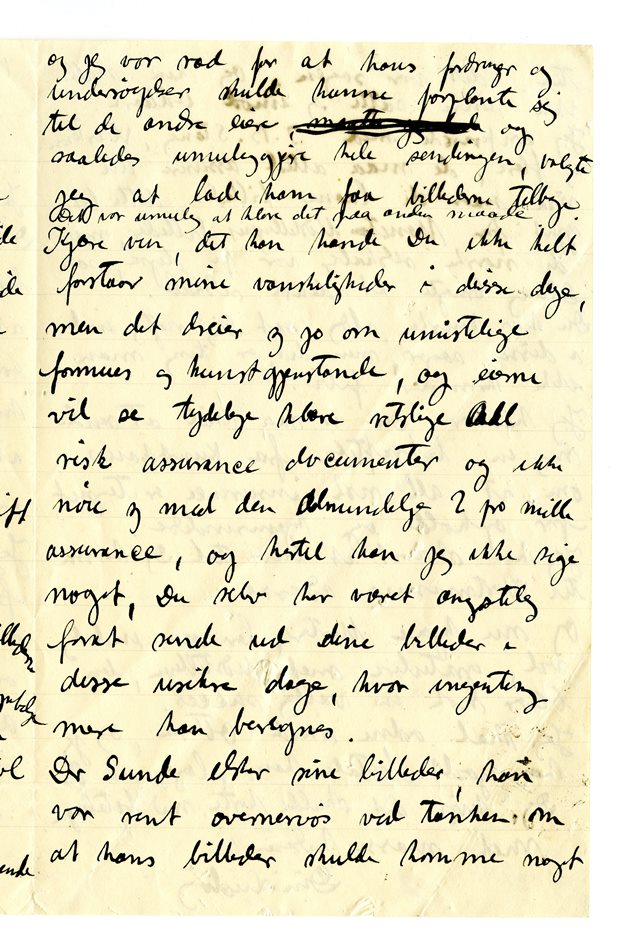 og jeg var ræd for at hans fordringer og
undersögelser skulde kunne forplante sig
til de andre eiere, og
saaledes umuliggjøre hele sendingen, valgte
jeg at lade ham faa billederne tilbage.
Det var umulig at klare det paa anden maade
Kjære ven, det kan hande Du ikke helt
forstaar mine vanskeligheder i disse dage,
men det dreier sig jo om umistelige
formues og kunstgjenstande, og eierne
vil se tydelige klare retslige All
risk assurance documenter og ikke
nöie sig med den almindelige 2 pro mille
assurance, og hertil kan jeg ikke sige
noget, Du selv har været ængstelig
forat sende ud dine billeder i
disse usikre dage, hvor ingenting
mere kan beregnes.
Dr Sunde elsker sine billeder, han
var rent overnervös ved tanken om
at hans billeder skulde komme noget